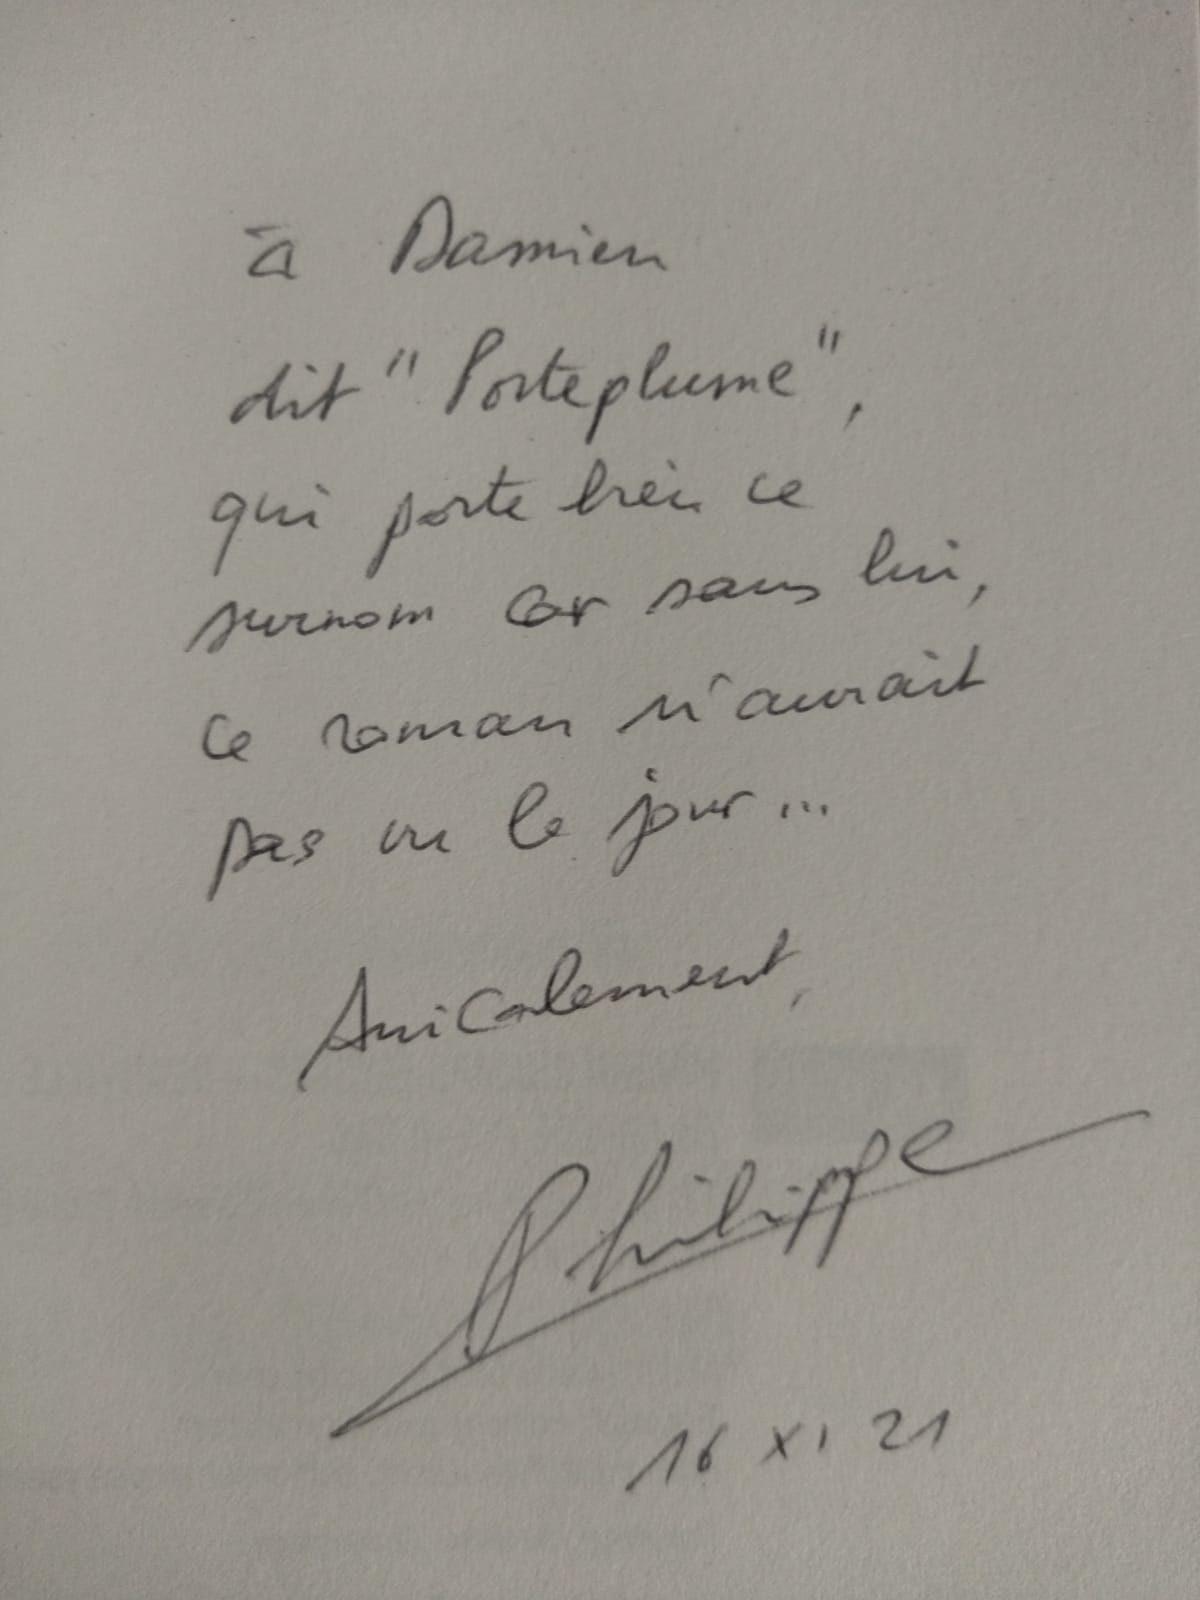 à Damien
dit "Porteplume",
qui porte bien ce
surnom car sans lui,
ce roman n'aurait
pas vu le jour...
Amicalement,
Philippe
16 XI 21